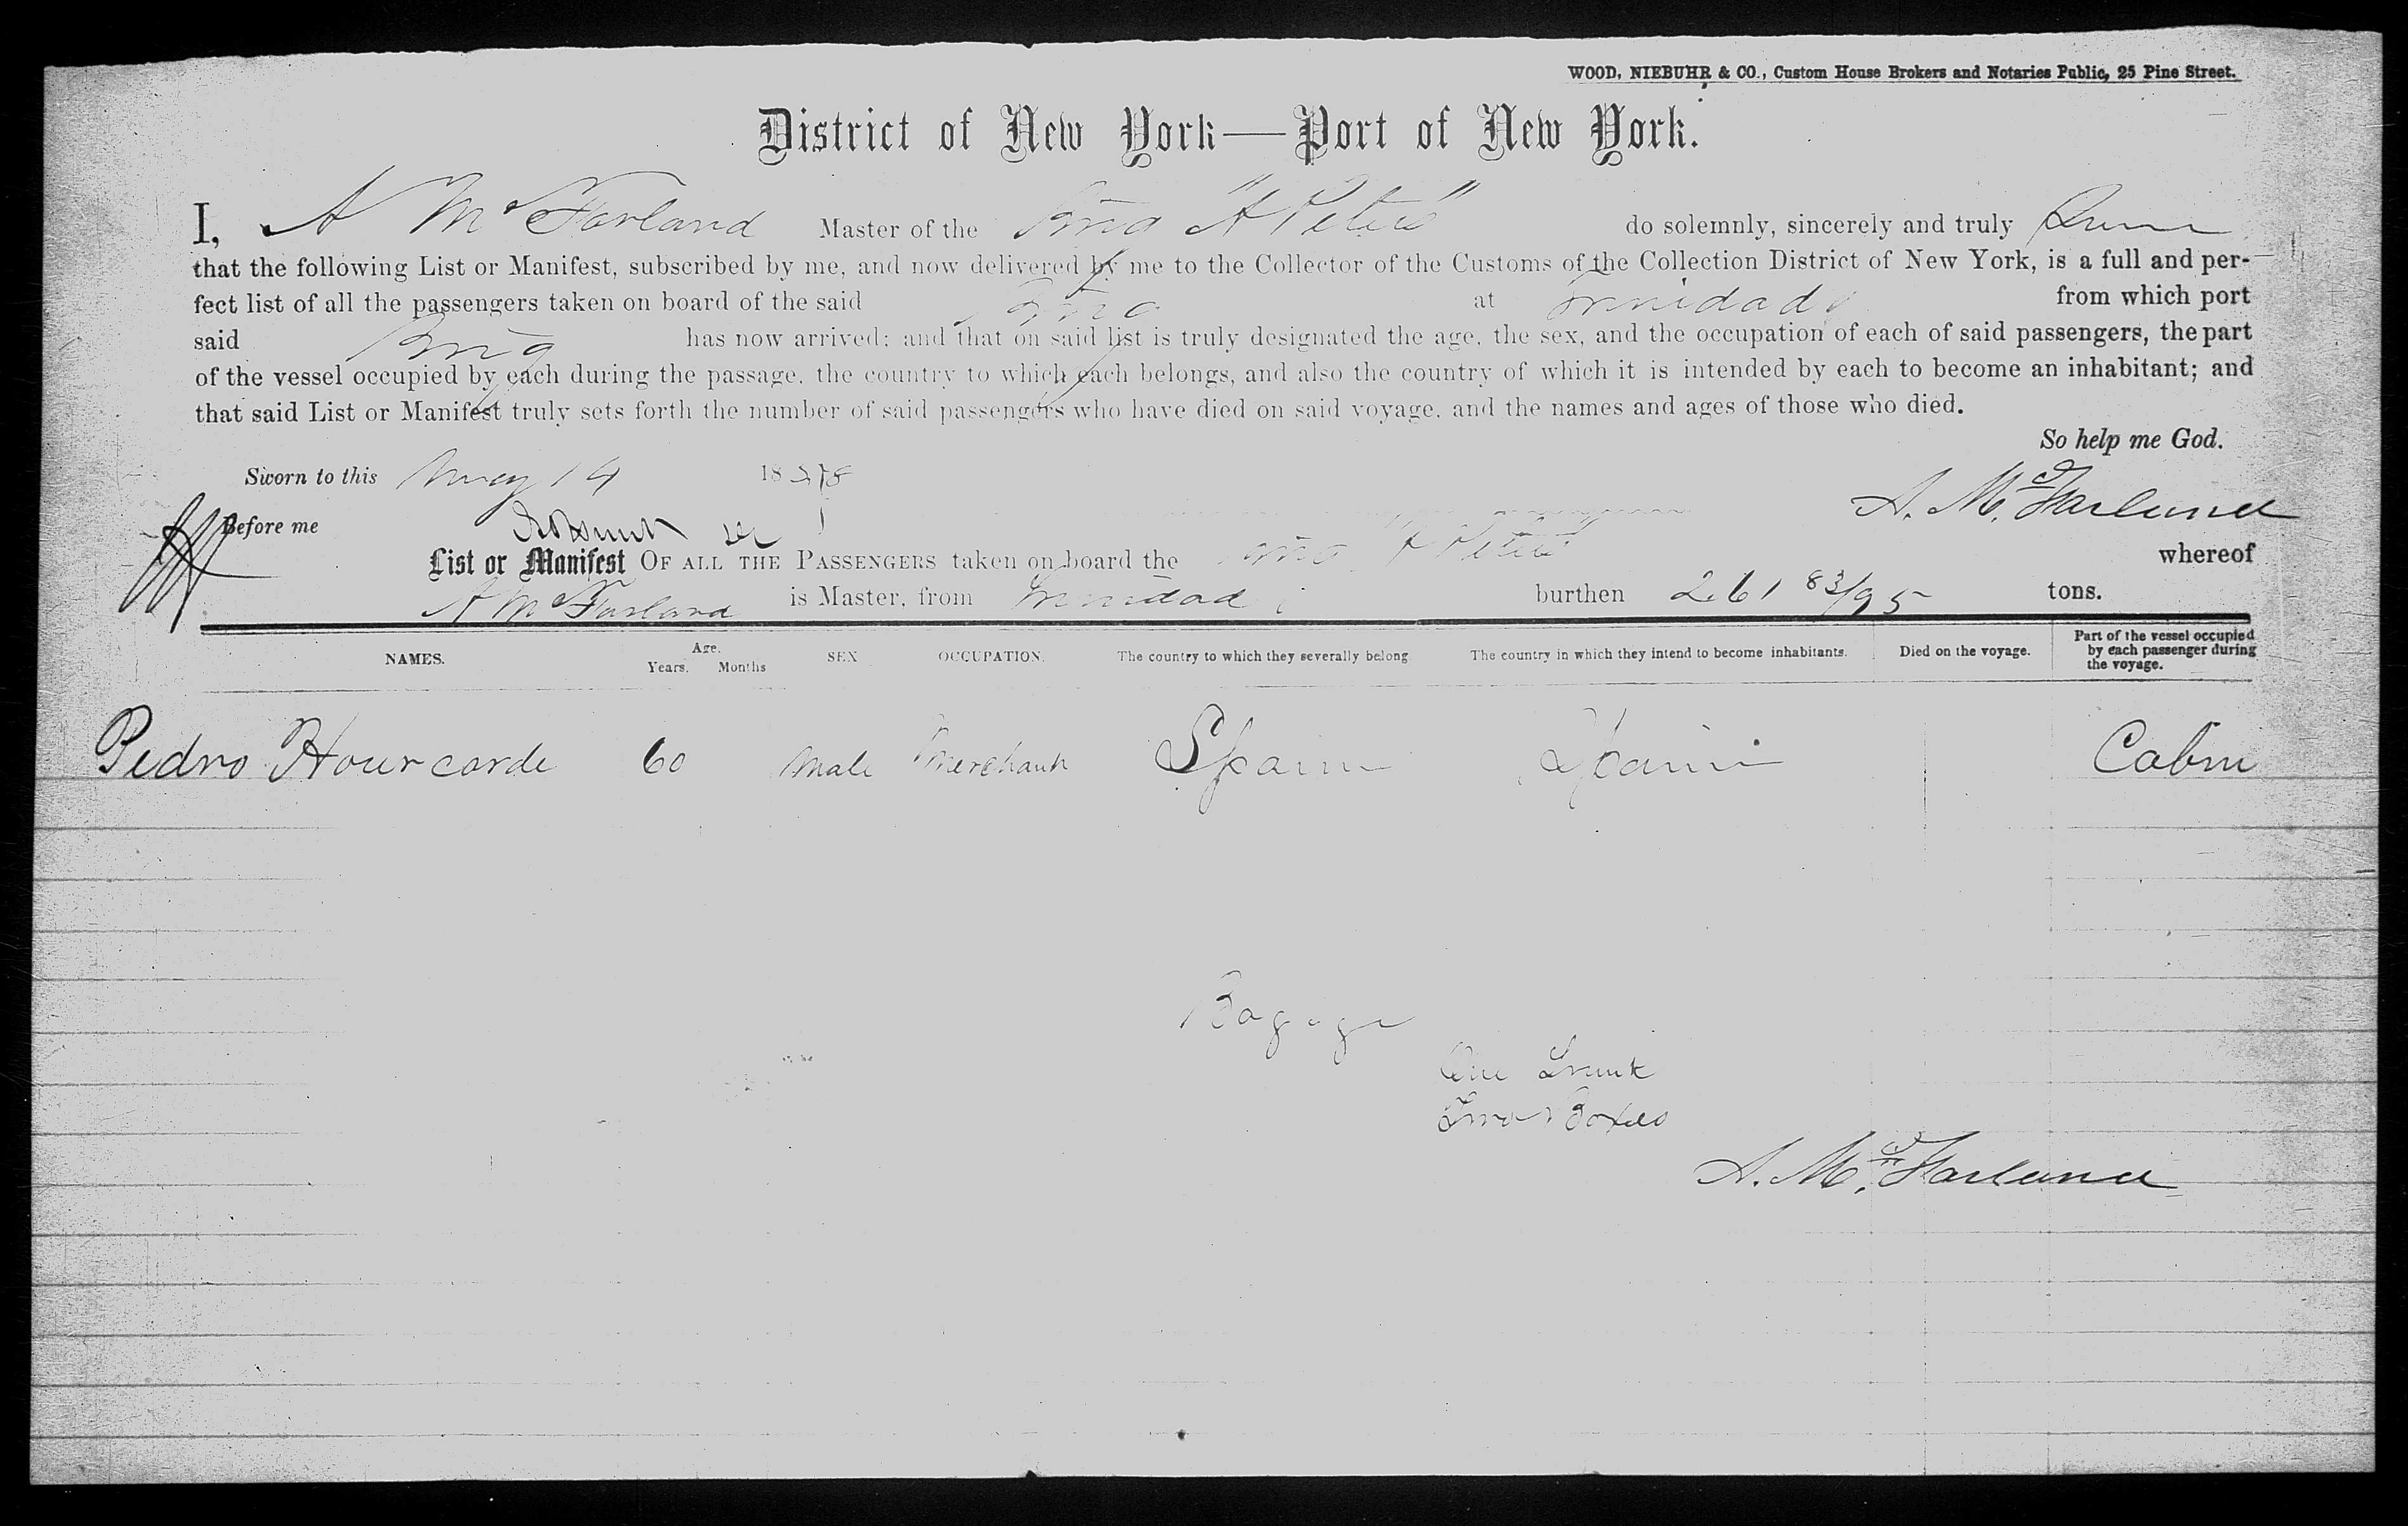 WOOD, NIEBUHR & CO., Custom House Brokers and Notaries Public, 25 Pine Street.
District of New York—Port of New York.
I, A McFarland Master of the Brig "A Peters" do solemnly, sincerely and truly Swear
that the following List or Manifest, subscribed by me, and now delivered by me to the Collector of the Customs of the Collection District of New York, is a full and per-
fect list of all the passengers taken on board of the said Brig at Trinidad from which port
said Brig has now arrived; and that on said list is truly designated the age, the sex, and the occupation of each of said passengers, the part
of the vessel occupied by each during the passage, the country to which each belongs, and also the country of which it is intended by each to become an inhabitant; and
that said List or Manifest truly sets forth the number of said passengers who have died on said voyage, and the names and ages of those who died.
So help me God.
Sworn to this May 14 18 A. McFarland
Before me
List or Manifest OF ALL THE PASSENGERS taken on board the Brig "A Peters" whereof
A McFarland is Master, from Trinidad burthen 261 83/95 tons.
NAMES. Age. Years. Months SEX OCCUPATION. The country to which they severally belong The country in which they intend to become inhabitants. Died on the voyage. Part of the vessel occupied by each passenger during the voyage.
Pedro Hourcarde 60 Male Merchant Spain Spain Cabin
Bagage
One Trunk
Two Boxes
A. McFarland